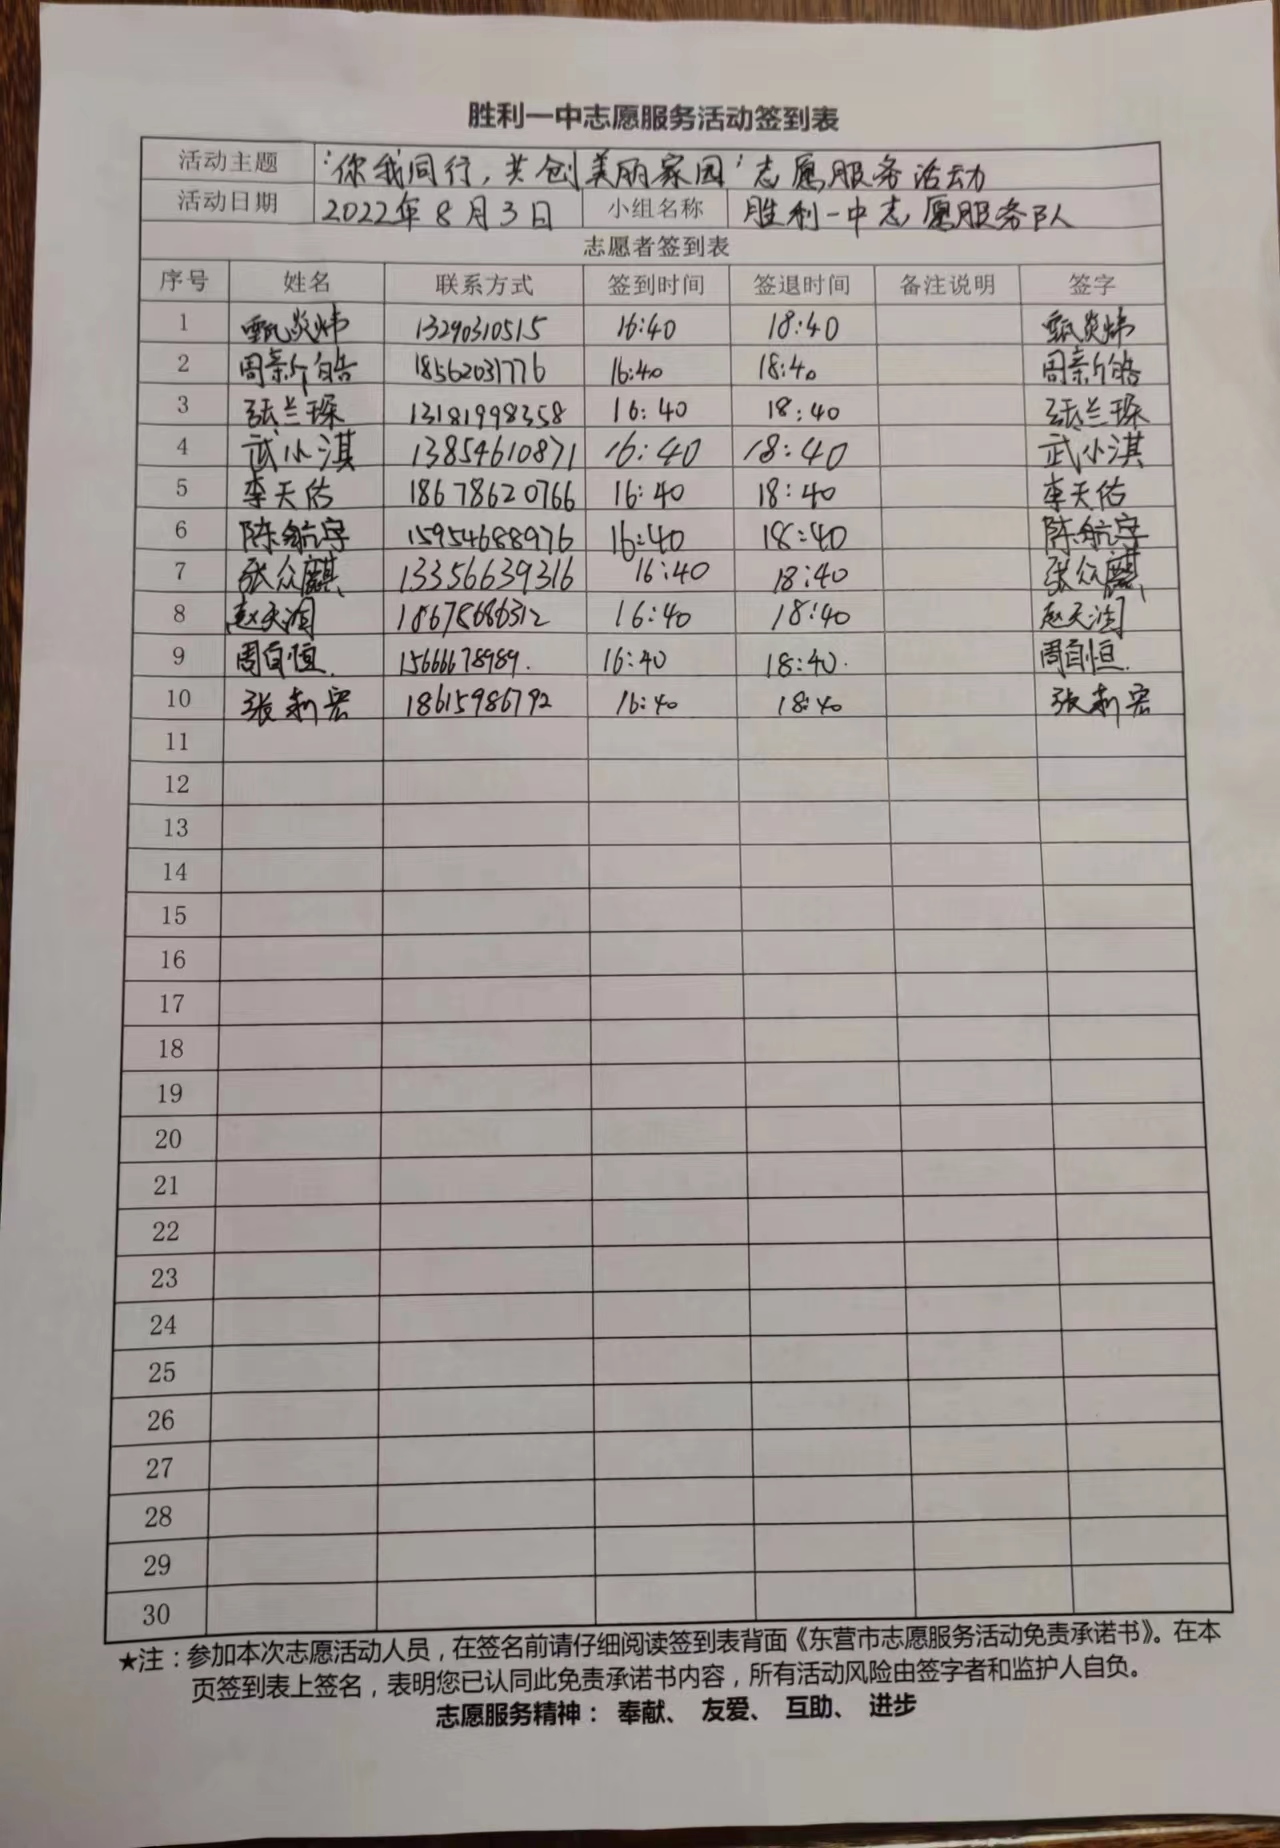 胜利一中志愿服务活动签到表
活动主题 “你我同行，共创美丽家园”志愿服务活动
活动日期 2022年8月3日 小组名称 胜利一中志愿服务队
志愿者签到表
序号 姓名 联系方式 签到时间 签退时间 备注说明 签字
1 甄炎炜 13290310515 16:40 18:40 甄炎炜
2 周新皓 18562031776 16:40 18:40 周新皓
3 张兰琛 13181998358 16:40 18:40 张兰琛
4 武小淇 13854610871 16:40 18:40 武小淇
5 李天佑 18678620766 16:40 18:40 李天佑
6 陈航宇 15954688976 16:40 18:40 陈航宇
7 张众麒 13356639316 16:40 18:40 张众麒
8 赵天润 18678686312 16:40 18:40 赵天润
9 周自恒. 15666678989. 16:40 18:40. 周自恒.
10 张莉宏 18615986792 16:40 18:40 张莉宏
11
12
13
14
15
16
17
18
19
20
21
22
23
24
25
26
27
28
29
30
★注：参加本次志愿活动人员，在签名前请仔细阅读签到表背面《东营市志愿服务活动免责承诺书》。在本
页签到表上签名，表明您已认同此免责承诺书内容，所有活动风险由签字者和监护人自负。
志愿服务精神： 奉献、 友爱、 互助、 进步